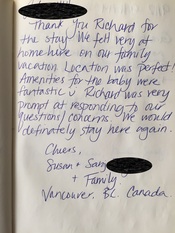 Thank You Richard for
the stay! We felt very at
home here on our family
vacation. Location was perfect!
Amenities for the baby were
fantastic :) Richard was very
prompt at responding to our
questions/concerns. We would
definately stay here again.
Cheers,
Susan + Sam
+ Family
Vancouver, BC. Canada